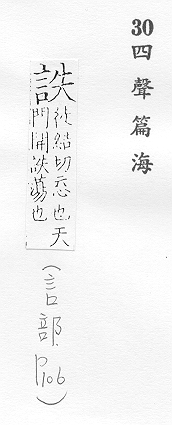 30四聲篇海
詄
徒結切忘也天
門開詄蕩也
(言部.P106)